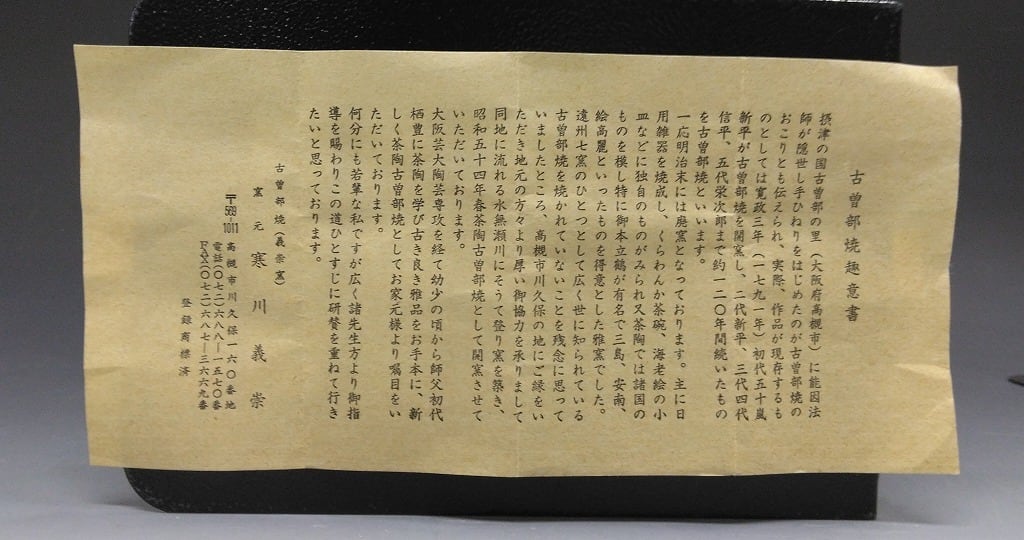 古曽部焼趣意書
摂津の国古曽部の里（大阪府高槻市）に能因法
師が隠世し手ひねりをはじめたのが古曽部焼の
おこりとも伝えられ、実際、作品が現存するも
のとしては寛政三年（一七九一年）初代五十嵐
新平が古曽部焼を開窯し、二代新平、三代四代
信平、五代栄次郎まで約一二〇年間続いたもの
を古曽部焼といいます。
一応明治末には廃窯となっております。主に日
用雑器を焼成し、くらわんか茶碗、海老絵の小
皿などに独自のものがみられ又茶陶では諸国の
ものを模し特に御本立鶴が有名で三島、安南、
絵高麗といったものを得意とした雅窯でした。
遠州七窯のひとつとして広く世に知られている
古曽部焼を焼かれていないことを残念に思って
いましたところ、高槻市川久保の地にご縁をい
ただき地元の方々より厚い御協力を承りまして
同地に流れる水無瀬川にそうて登り窯を築き、
昭和五十四年春茶陶古曽部焼として開窯させて
いただいております。
大阪芸大陶芸専攻を経て幼少の頃から師父初代
栖豊に茶陶を学び古き良き雅品をお手本に、新
しく茶陶古曽部焼としてお家元様より嘱目をい
ただいております。
何分にも若輩な私ですが広く諸先生方より御指
導を賜わりこの道ひとすじに研賛を重ねて行き
たいと思っております。
古曽部焼（義崇窯）
窯元 寒川義崇
〒569-1011 高槻市川久保一六〇番地
電話（〇七二）六八八－一五七〇番
FAX（〇七二）六八七－三六六九番
登録商標済